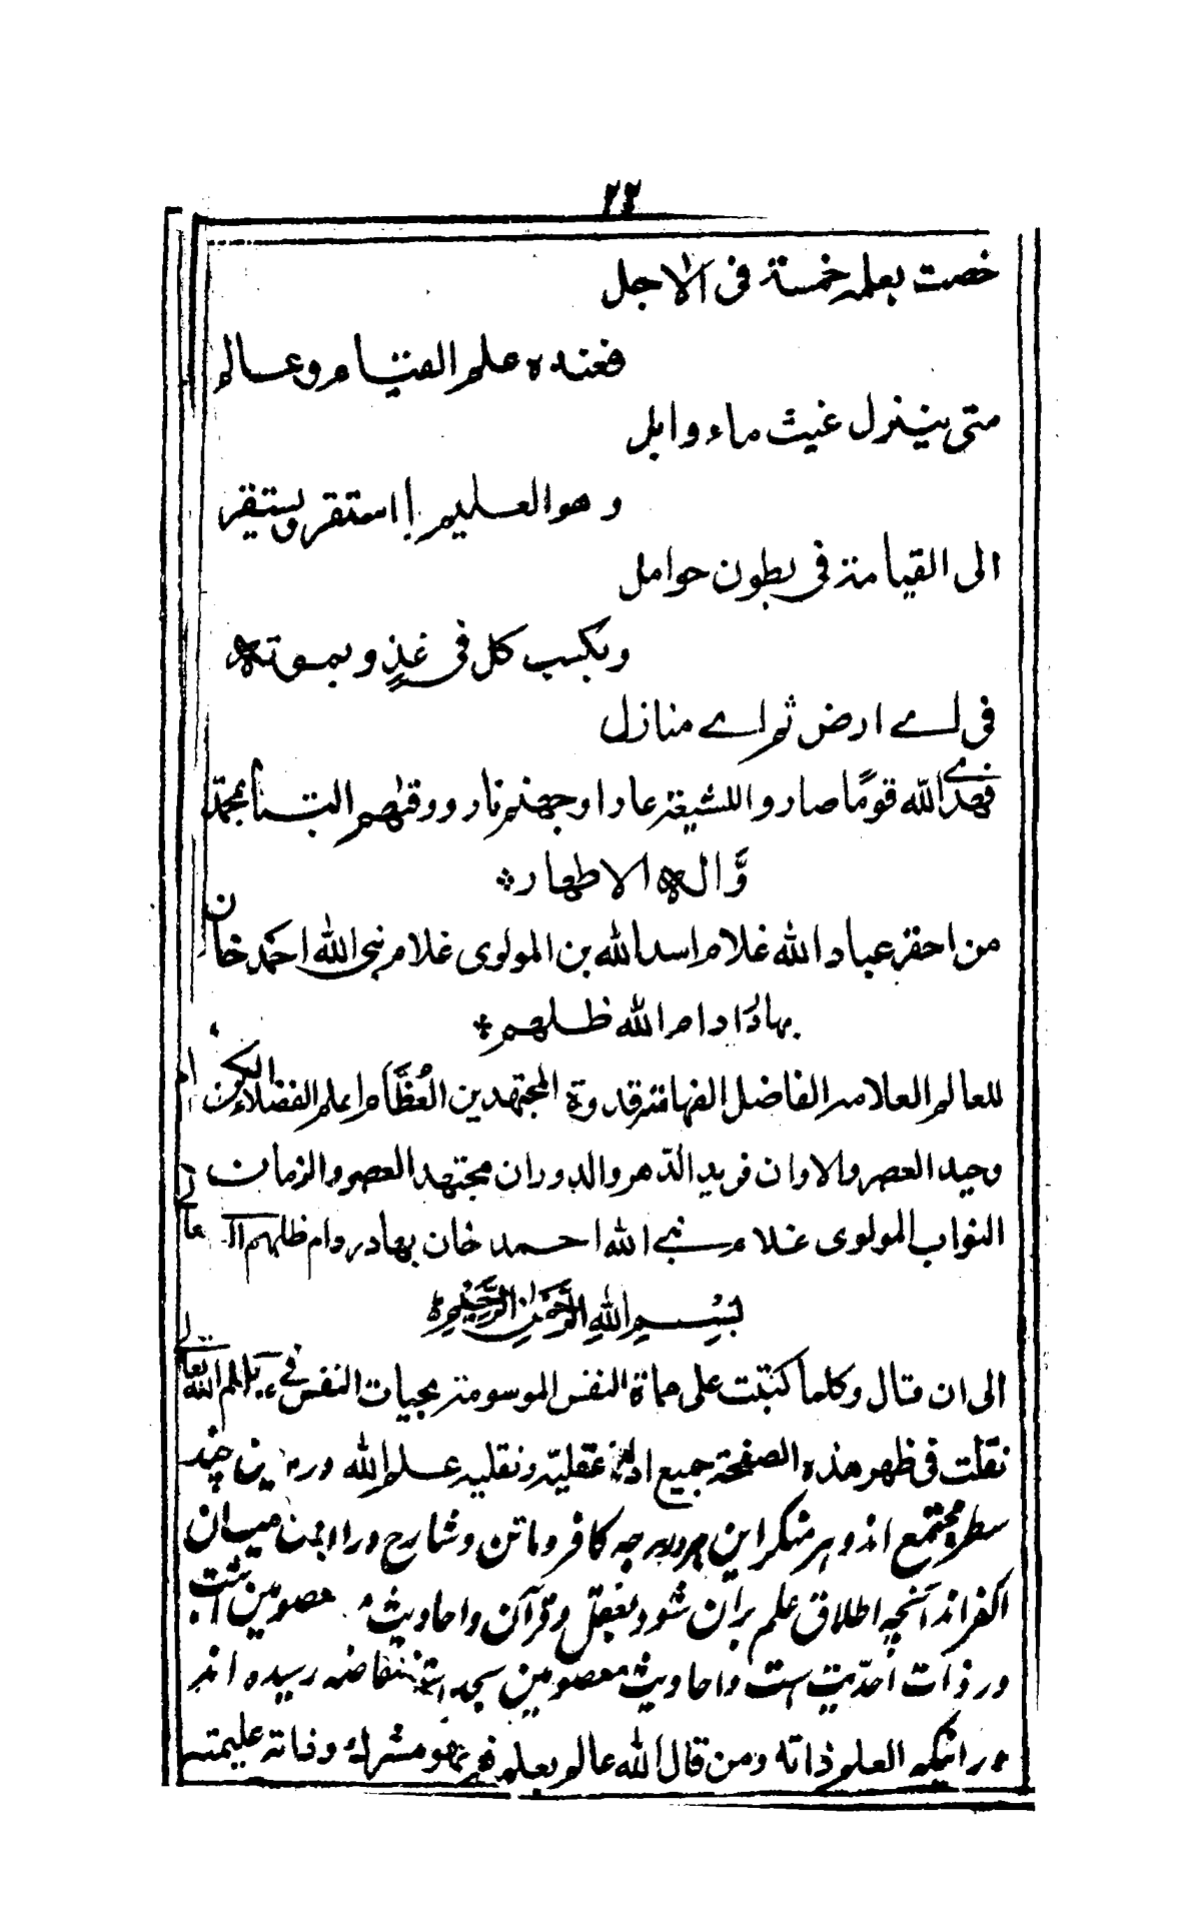 ٢٢
خصت بعلمه خمسة فی الاجل
فعنده علم القیام وعالم
متی ینزل غیث ماء وابل
وهو العلیم با استقر ویستقر
الی القیامة فی بطون حوامل
ویکسب کل فی غذٍ ویموته
فی اے ارض ثم اے منازل
فهدے الله قومًا صاروا للشیعة عارا وجهنم نار ووقٰهم التبا بمحمدٍ
وَّاله الاطهار
من احقر عباد الله غلام اسد الله بن المولوی غلام نبی الله احمد خان
بهادر ادام الله ظلهم
للعالم العلامه الفاضل الفهامة قدوة المجتهدین العُظَّام اعلم الفضلاء الکرام
وحید العصر والاوان فرید الدّهر والدوران مجتهد العصر والزمان
النواب المولوی غلام نبی الله احمد خان بهادر دام ظلهم العالے
بِسْمِ اللهِ الرَّحْمٰنِ الرَّحِیْمِ
الی ان قال وکلما کتبت علی حماة النفس الموسومة بحیات النفس فی علم الله تعالے
نقلت فی ظهر هذه الصفحة جمیع ادلهٔ عقلیّه ونقلیه علم الله درین چند
سطر مجتمع اند وهر منکر این درجه کافر و ماتن و شارح و راوین میان
اکفر اند آنچه اطلاق علم بران شود بعقل و قرآن و احادیث معصومین ثابت
در ذات احدّیت است و احادیث معصومین بحد استفاضه رسیده اند
در اینکه العلم ذاته ومن قال الله عالم بعلم فهو مشرك وذاته علیمته